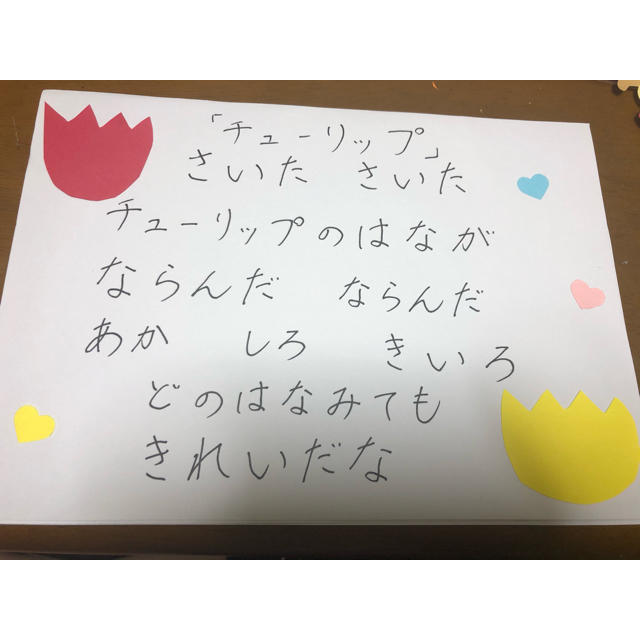 「チューリップ」
さいた　さいた
チューリップのはなが
ならんだ　ならんだ
あか　しろ　きいろ
どのはなみても
きれいだな